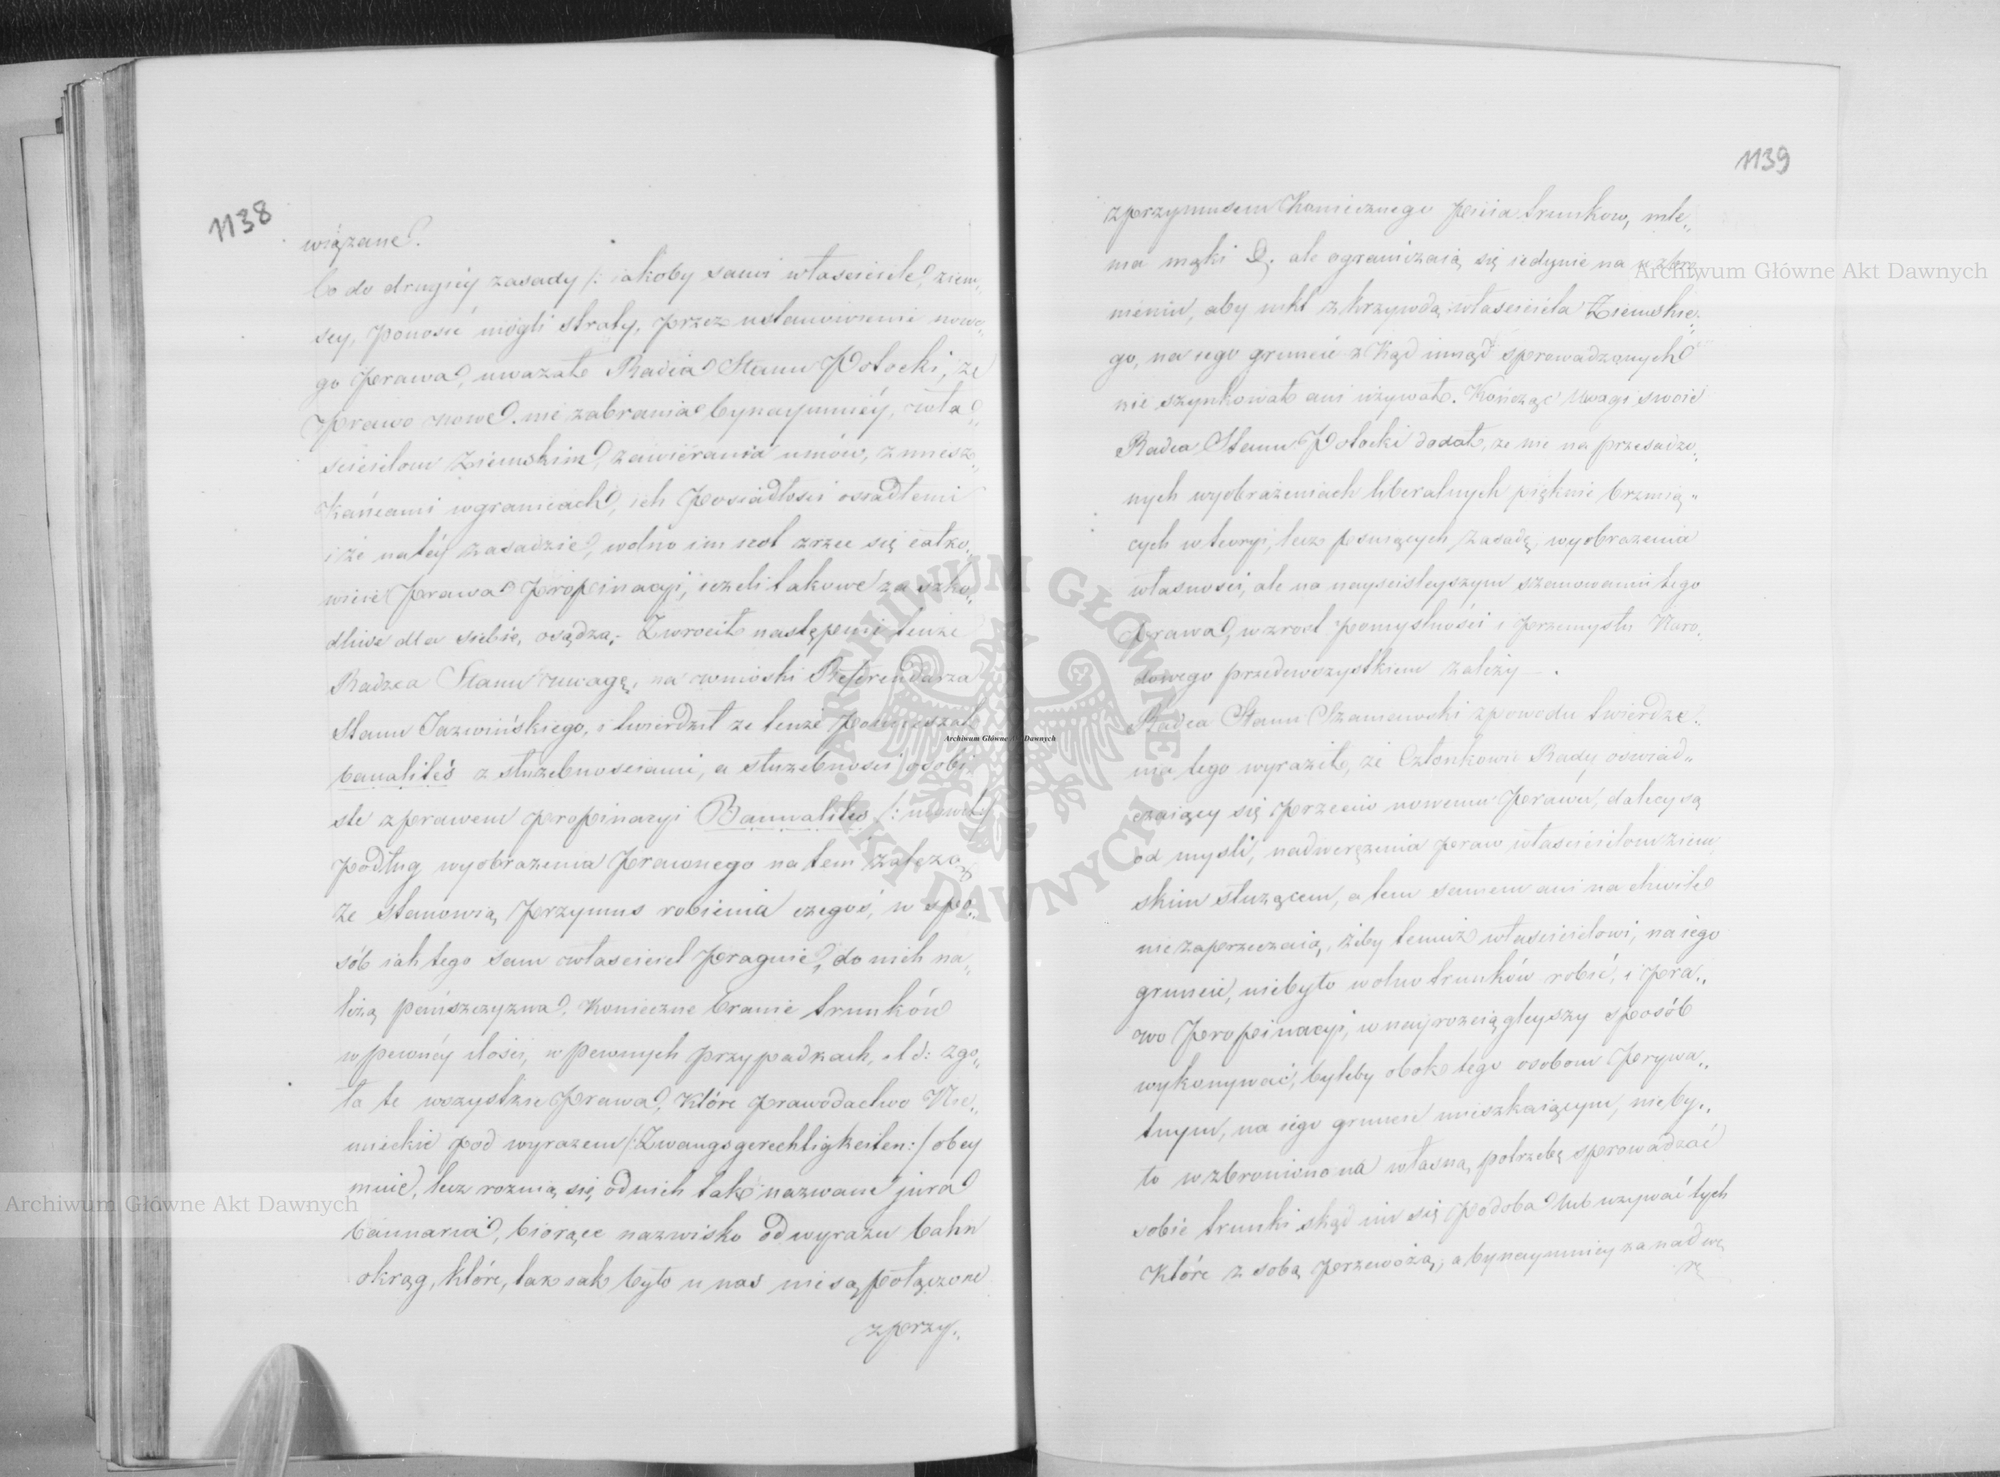 1138
wiązane.
Co do drugiéy zasady /: iakoby sami właściciele ziem„
scy, ponosić mogli straty, przez ustanowienie nowe„
go prawa, uważał Radca Stanu Potocki, że
prawo nowe nie zabrania bynaymniéy, wła„
ścicielom Ziemskim, zawiérania umów, z miesz„
kańcami w granicach, ich posiadłości osiadłemi
i że na téy zasadzie, wolno im iest zrzec się całko„
wicie prawa propinacyi, ieżeli takowe za szko„
dliwe dla siebie, osądzą. Zwrócił następnie tenże
Radzca Stanu uwagę, na wnioski Referendarza
Stanu Jazwińskiego, i twierdził że tenże pomieszał
banalités z służebnościami, a służebności osobi
ste z prawem propinacyi Bannalites /: mówił /
podług wyobrażenia prawnego na tem zależą
że stanowią przymus robienia czegoś, w spo„
sób iak tego sam właściciel pragnie, do nich na„
leżą pańszczyzna, konieczne branie trunków
w pewnéy ilości, w pewnych przypadkach, etd: zgo„
ła te wszystkie prawa, które prawodactwo Nie„
mieckie pod wyrazem /: Zwangsgerechtigkeiten :/ obey
muie, lecz roznią się od nich tak nazwane jura
bannaria, biorące nazwisko od wyrazu bahn
okrąg, które, tak iak było u nas nie są połączone
z przy„
1139
z przymusem koniecznego picia trunkow, mle„
nia mąki &. ale ograniczaią się iedynie na wzbro
nieniu, aby nikt z krzywdą właściciela Ziemskie„
go, na iego gruncie z kąd inąd sprowadzonych
nie szynkował ani używał. Kończąc uwagi swoie
Radca Stanu Potocki dodał, że nie na przesadzo„
nych wyobrażeniach liberalnych pięknie brzmią„
cych w teoryi, lecz psuiących zasadę, wyobrażenia
własności, ale na nayściśleyszym szanowaniu tego
prawa, wzrost pomyślności i przemysłu Naro„
dowego przedewszystkiem zależy.
Radca Stanu Szaniawski z powodu twierdze„
nia tego wyraził, że Członkowie Rady oswiad„
czaiący się przeciw nowemu prawu, dalecy są
od myśli, nadwerężenia praw właścicielom ziem
skim służącem, a tem samem ani na chwile
nie zaprzeczaią, żeby temuż właścicielowi, na iego
gruncie, niebyło wolno trunków robić, i pra„
wo propinacyi, w nayrozciągleyszy sposób
wykonywać, byleby obok tego osobom prywa„
tnym, na iego gruncie mieszkaiącym, nie by„
ło wzbroniono na własną potrzebę sprowadzać
sobie trunki skąd im się podoba lub używać tych
które z sobą przewożą, a bynaymniey za nadwe
rę
Archiwum Główne Akt Dawnych
Archiwum Główne Akt Dawnych
Archiwum Główne Akt Dawnych
ARCHIWUM GŁÓWNE
AKT DAWNYCH